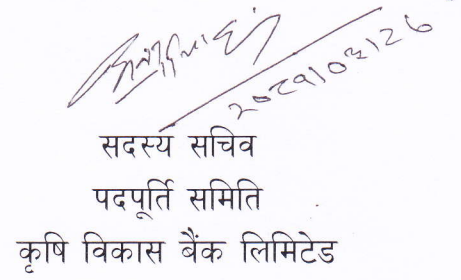 २०८१।०३।२७
सदस्य सचिव
पदपूर्ति समिति
कृषि विकास बैंक लिमिटेड